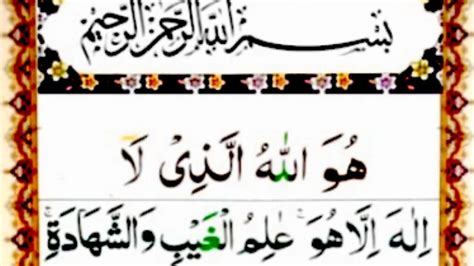 بِسْمِ اللهِ الرَّحْمٰنِ الرَّحِيْمِ
هُوَ اللهُ الَّذِىْ لَا
اِلٰهَ اِلَّا هُوَ ۚ عٰلِمُ الْغَيْبِ وَالشَّهَادَةِ ۚ